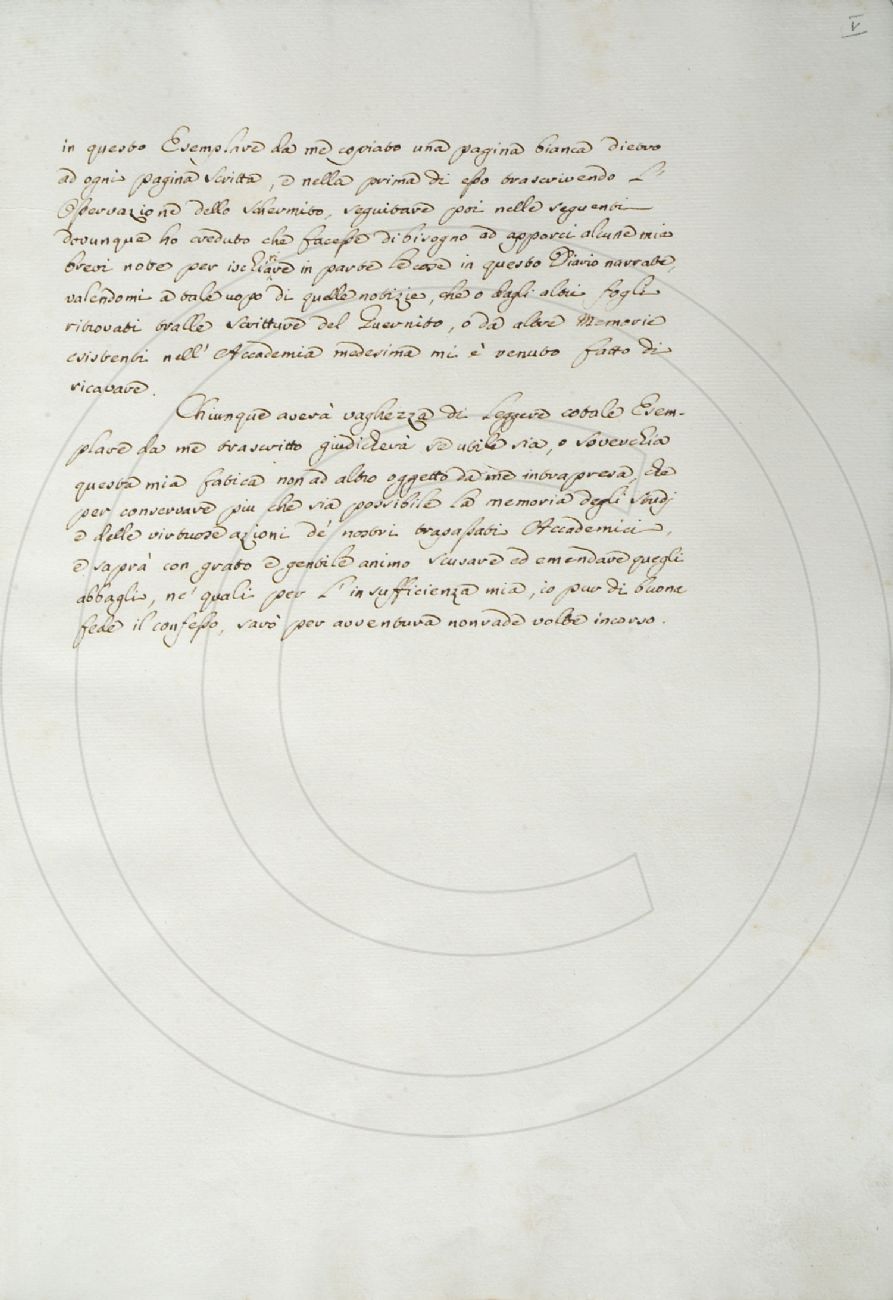 V
in questo Esemplare da me copiato una pagina bianca dietro
ad ogni pagina scritta, e nella prima di esso trascrivendo l'
Osservazione dello Schermito, seguitare poi nelle seguenti
dovunque ho creduto che facesse di bisogno ad apporci alcune mie
brevi note per ischiarare in parte le cose in questo Diario narrate,
valendomi a tale uopo di quelle notizie, che o dagli altri fogli
ritrovati tralle scritture del Guernito, o da altre Memorie
esistenti nell' Accademia medesima mi è venuto fatto di
ricavare.
Chiunque averà vaghezza di leggere cotale Esem-
plare da me trascritto giudicherà se utile sia, o soverchia
questa mia fatica non ad altro oggetto da me intrapresa, che
per conservare piu che sia possibile la memoria degli studj
e delle virtuose azioni de' nostri trapassati Accademici,
e saprà con grato e gentile animo scusare ed emendare quegli
abbagli, ne' quali per l' insufficienza mia, io pur di buona
fede il confesso, sarò per avventura non rade volte incorso.